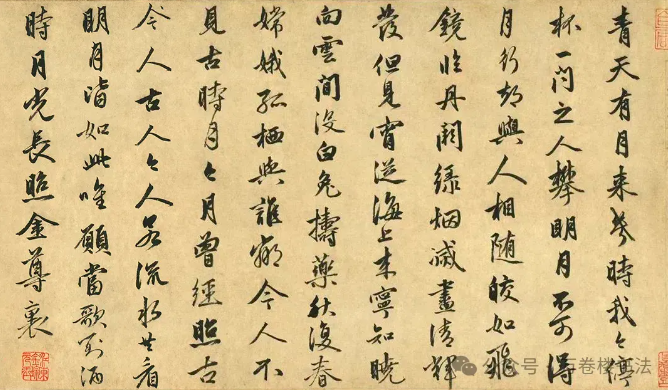 青天有月来幾時我今停
杯一问之人攀明月不可得
月行却與人相随皎如飛
鏡临丹闕緑烟滅盡清輝
發但見宵從海上来寧知曉
向雲間没白兔擣藥秋復春
嫦娥孤栖與誰鄰今人不
見古時月今月曾經照古
今人古人今人若流水共看
明月皆如此唯願當歌對酒
時月光長照金尊裏